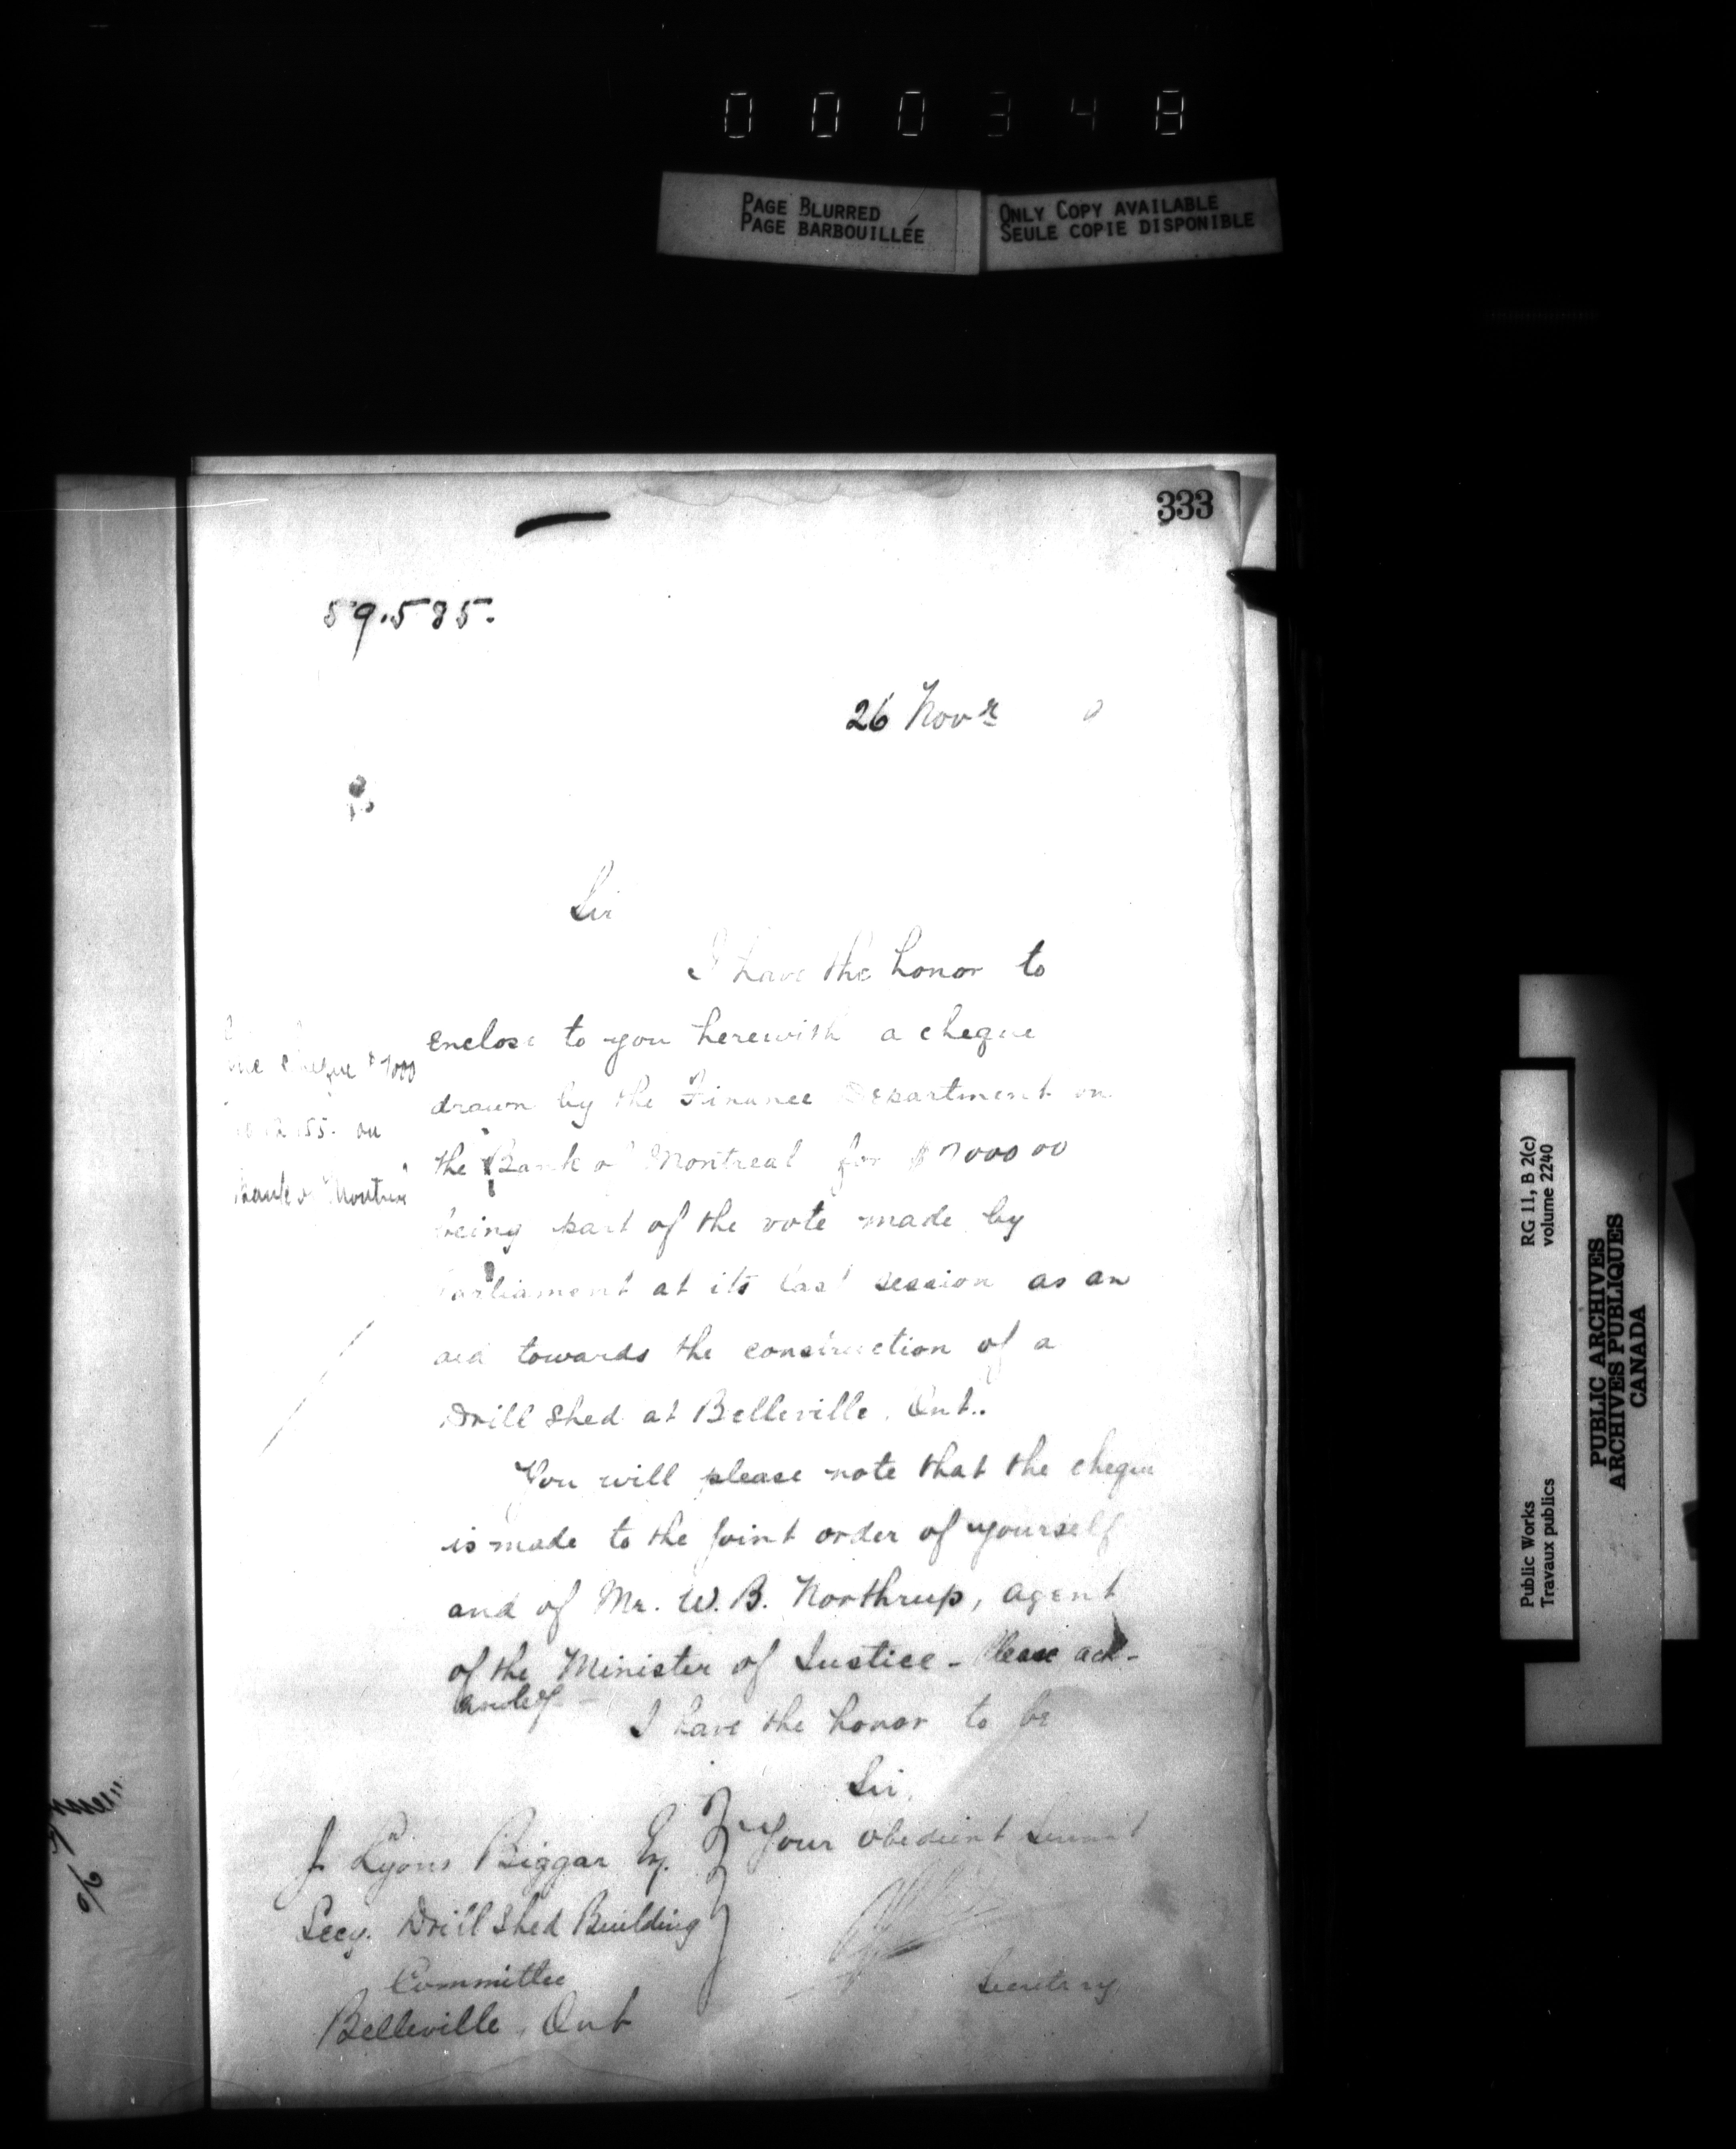 000348
PAGE BLURRED
PAGE BARBOUILLÉE
ONLY COPY AVAILABLE
SEULE COPIE DISPONIBLE
333
59.585.
26 Novr
Sir
I have the honor to
enclose to you herewith a cheque
drawn by the Finance Department on
the Bank of Montreal for $7000 00
being part of the vote made by
Parliament at its last session as an
aid towards the construction of a
Drill Shed at Belleville, Ont.
You will please note that the cheque
is made to the joint order of yourself
and of Mr. W. B. Northrup, agent
of the Minister of Justice - Please ack-
I have the honor to be
Sir,
Your obedient Servant
Secretary
J. Lyons Biggar Esq.
Secy. Drill Shed Building
Committee
Belleville, Ont
cheque $7000
on
Bank of Montreal
Public Works
Travaux publics
RG 11, B 2(c)
volume 2240
PUBLIC ARCHIVES
ARCHIVES PUBLIQUES
CANADA